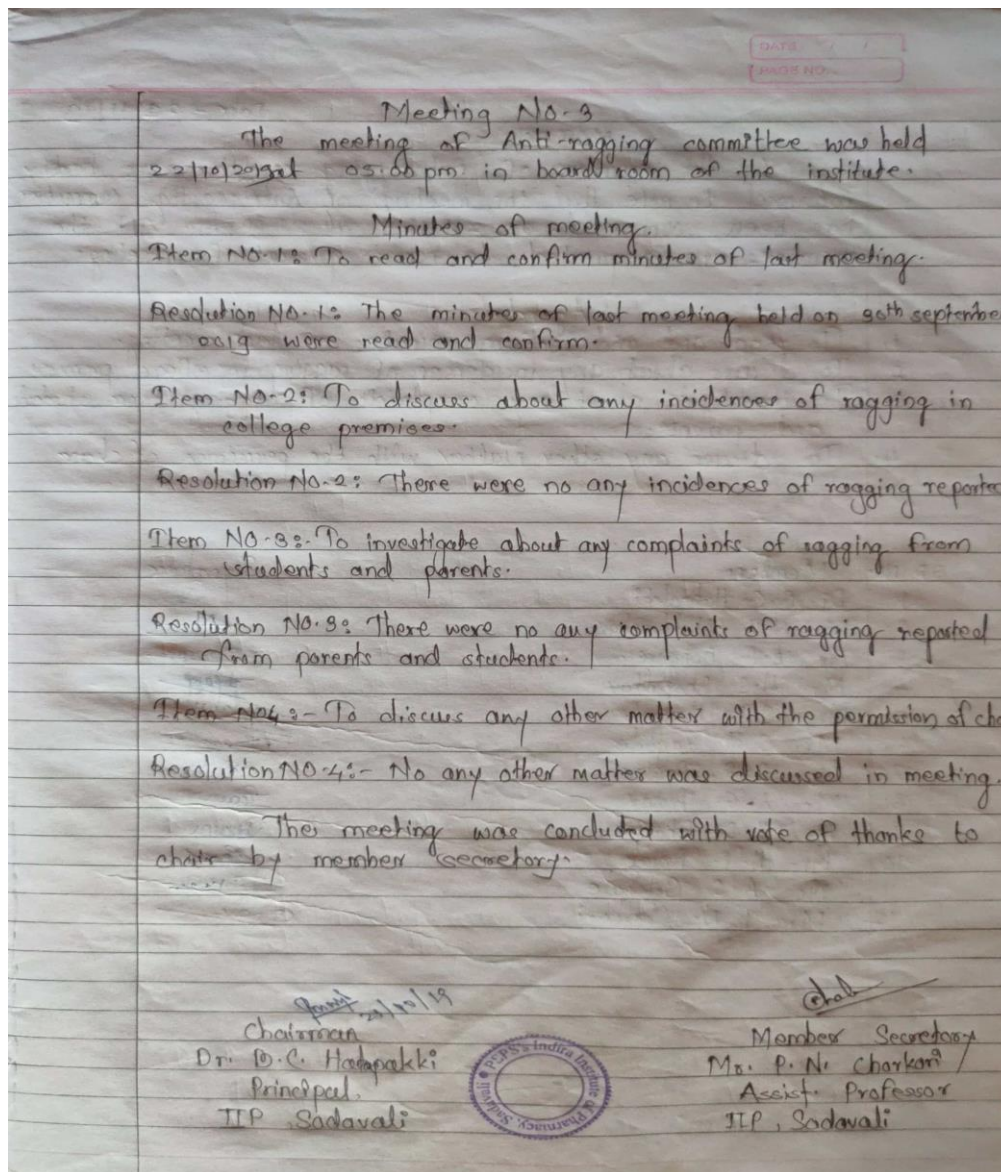 DATE / /
PAGE NO.
Meeting No-3
The meeting of Anti-ragging committee was held
22/10/2019 at 05:00 pm in board room of the institute.
Minutes of meeting.
Item No-1: To read and confirm minutes of last meeting.
Resolution No.1: The minutes of last meeting held on 30th septembe
2019 were read and confirm.
Item No-2: To discuss about any incidences of ragging in
college premises.
Resolution No.2: There were no any incidences of ragging reported
Item No-3:- To investigate about any complaints of ragging from
students and parents.
Resolution No.3: There were no any complaints of ragging reported
from parents and students.
Item No4:- To discuss any other matter with the permission of cha
Resolution NO.4:- No any other matter was discussed in meeting.
The meeting was concluded with vote of thanks to
chair by member secretory.
/10/19
Chairman
Member Secretory
Dr. D.C. Hadapakki
Mr. P. N. Charkari
Principal.
Assist. Professor
IIP Sadavali
IIP, Sadavali
PSPS's Indira Institute of Pharmacy, Sadavali